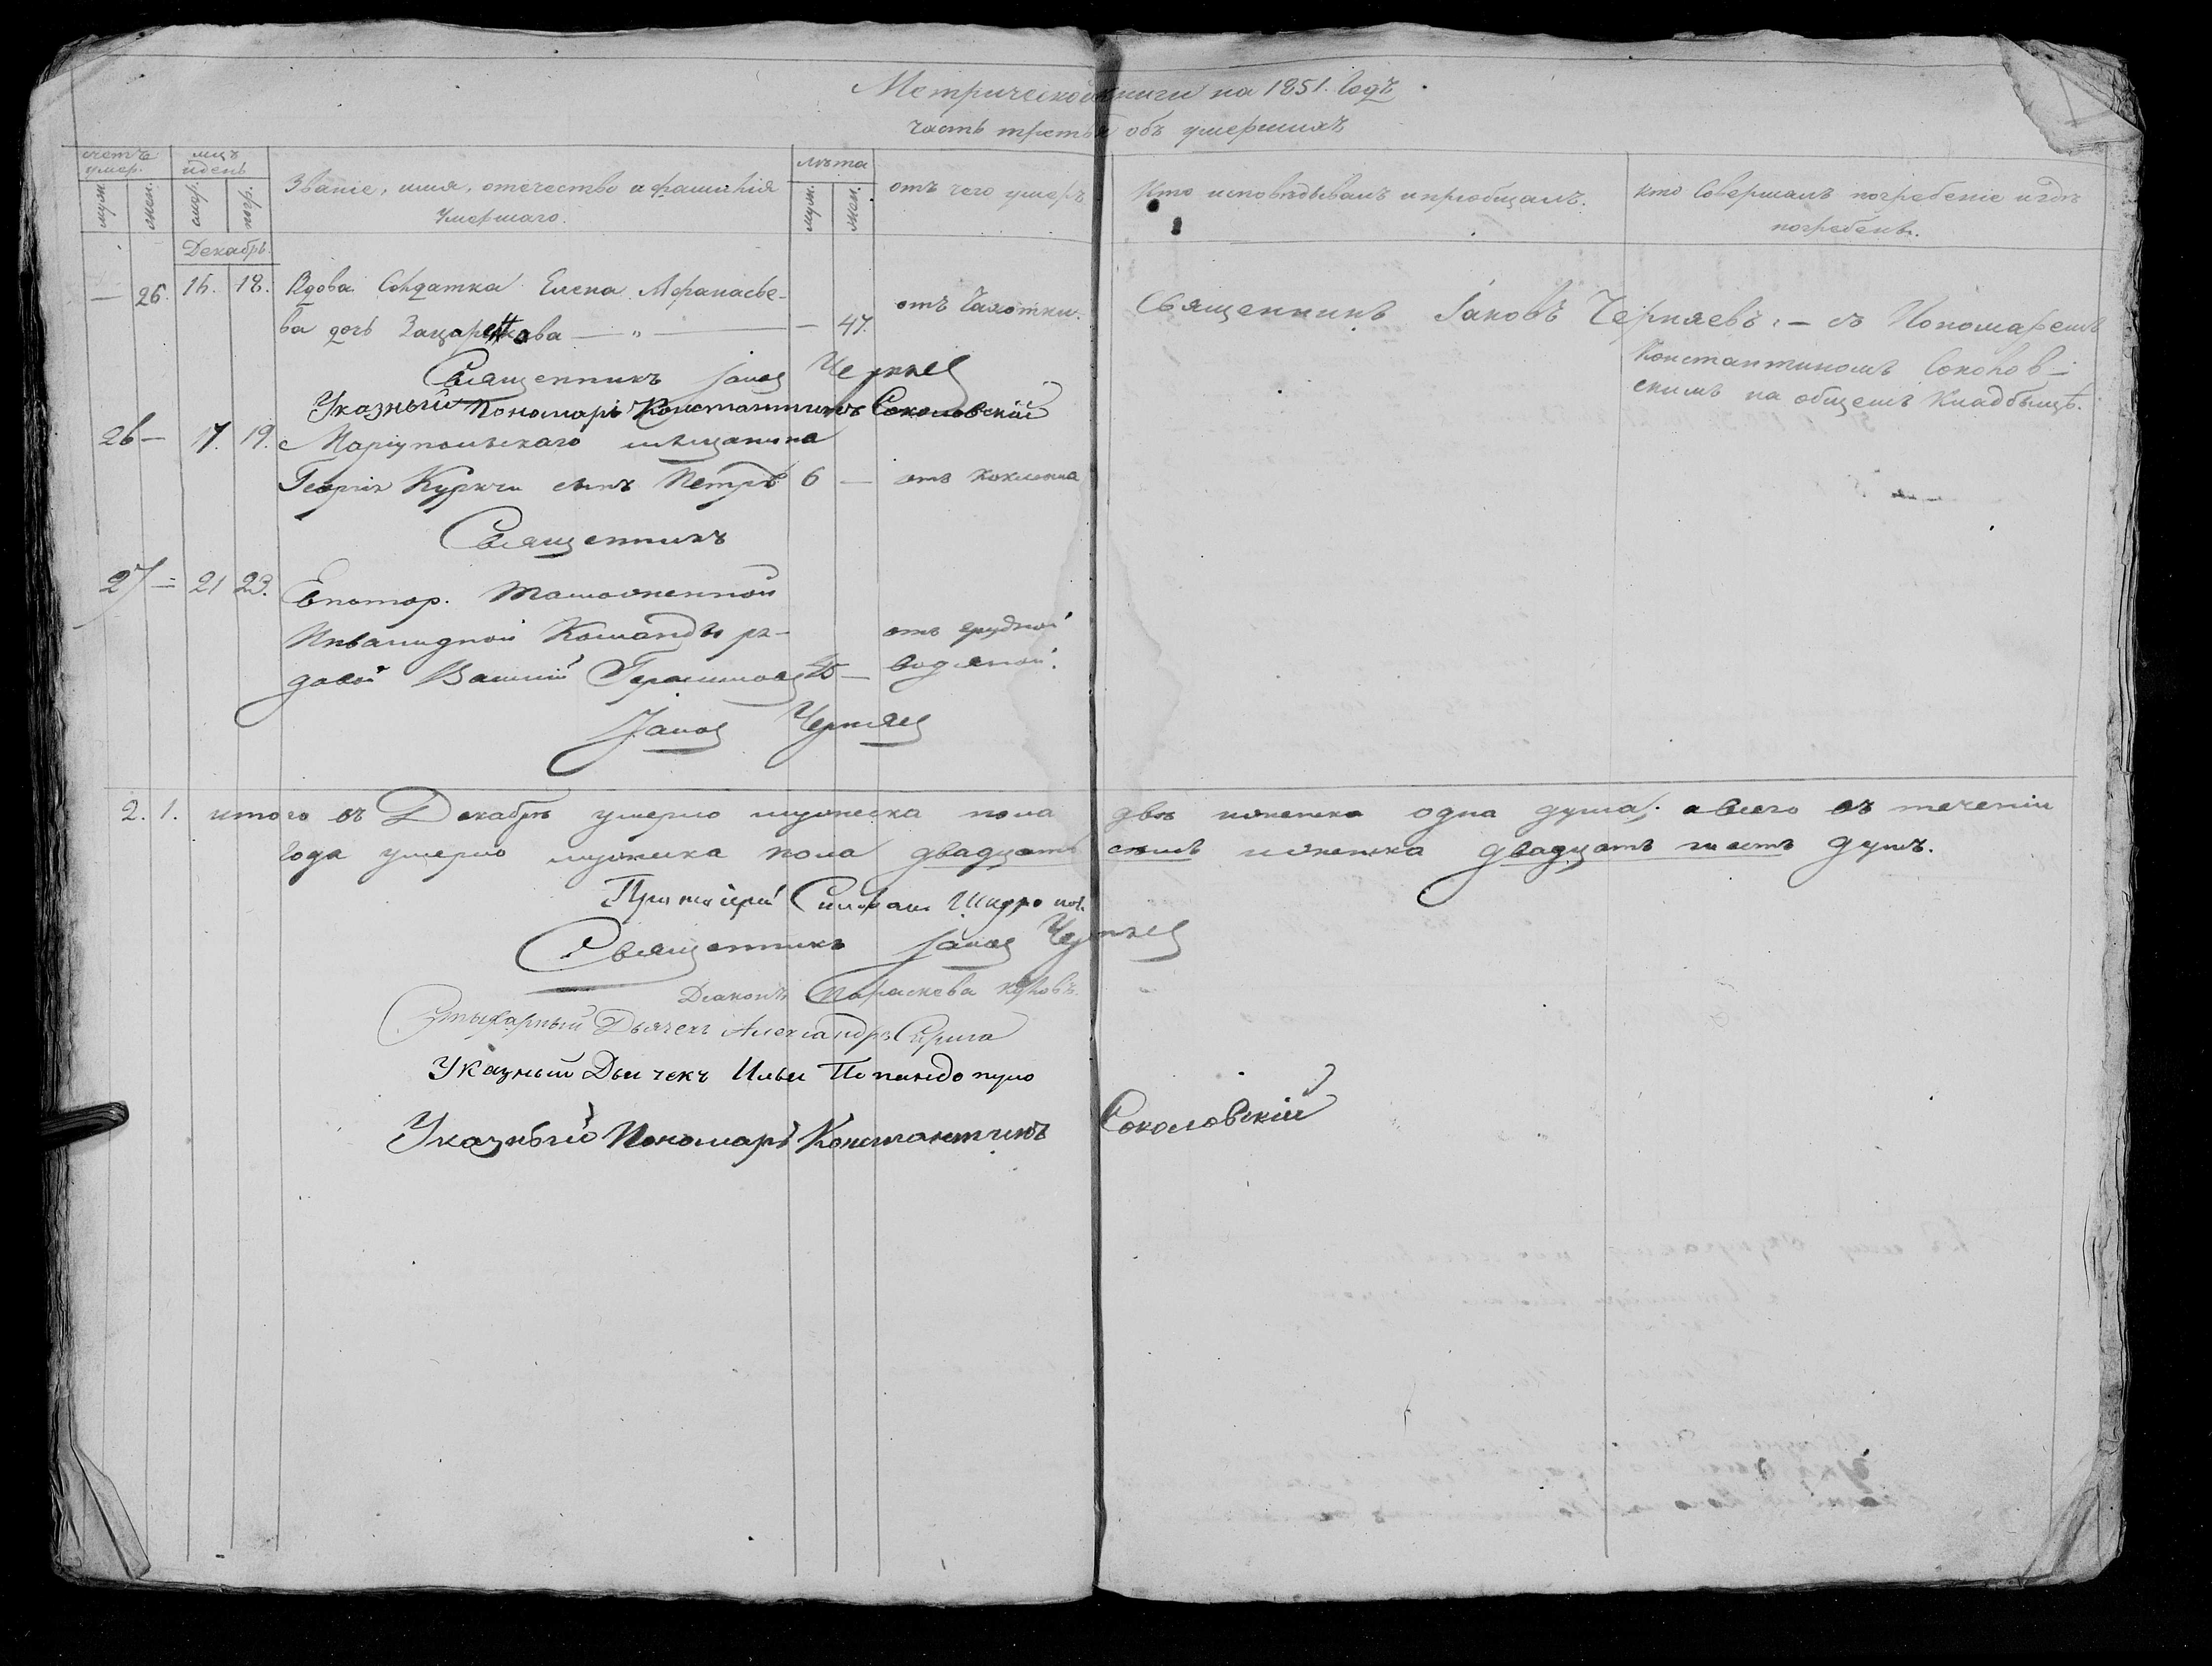 Метрической книги на 1851. Годъ
часть третья объ умершихъ
счетъ умер.
муж.
жен.
мцъ и день
смер.
погр.
Званіе, имя, отечество и фамилія
Умершаго.
лѣта
муж.
жен.
отъ чего умеръ
Кто исповѣдывалъ и пріобщалъ.
кто Совершалъ погребеніе и гдѣ
погребенъ.
Декабрь.
— 26. 16. 18. Вдова Солдатка Елена Афанасье-
ва дочь — „ — — 47. отъ Чахотки.
Священникъ Іаковъ Черняевъ. — съ Пономаремъ
Константиномъ Соколов-
скимъ на общемъ Кладбыщѣ.
Священникъ Іаков Черняев
Указный Пономарь Константинъ Соколовскій
26 — 17. 19. Маріупольскаго мѣщанина
Георгія Куркчи сынъ Петръ 6 — отъ коклюша
Священникъ
27 — 21 23. Евпатор. Таможенной
Инвалидной Команды ря-
довой Василій Герасимов — отъ грудной
водяной.
Іаков Черняев
2. 1. итого въ Декабрѣ умерло мужеска пола двѣ и женска одна душа, а всего въ теченіи
Года умерло мужеска пола двадцать семь и женска двадцать шесть душъ.
Протоіерей
Священникъ Іаков Черняев
Діаконъ Параскева
Дьячекъ Александръ
Указный Дьячекъ Илья Попандопуло
Указный Пономарь Константинъ Соколовскій